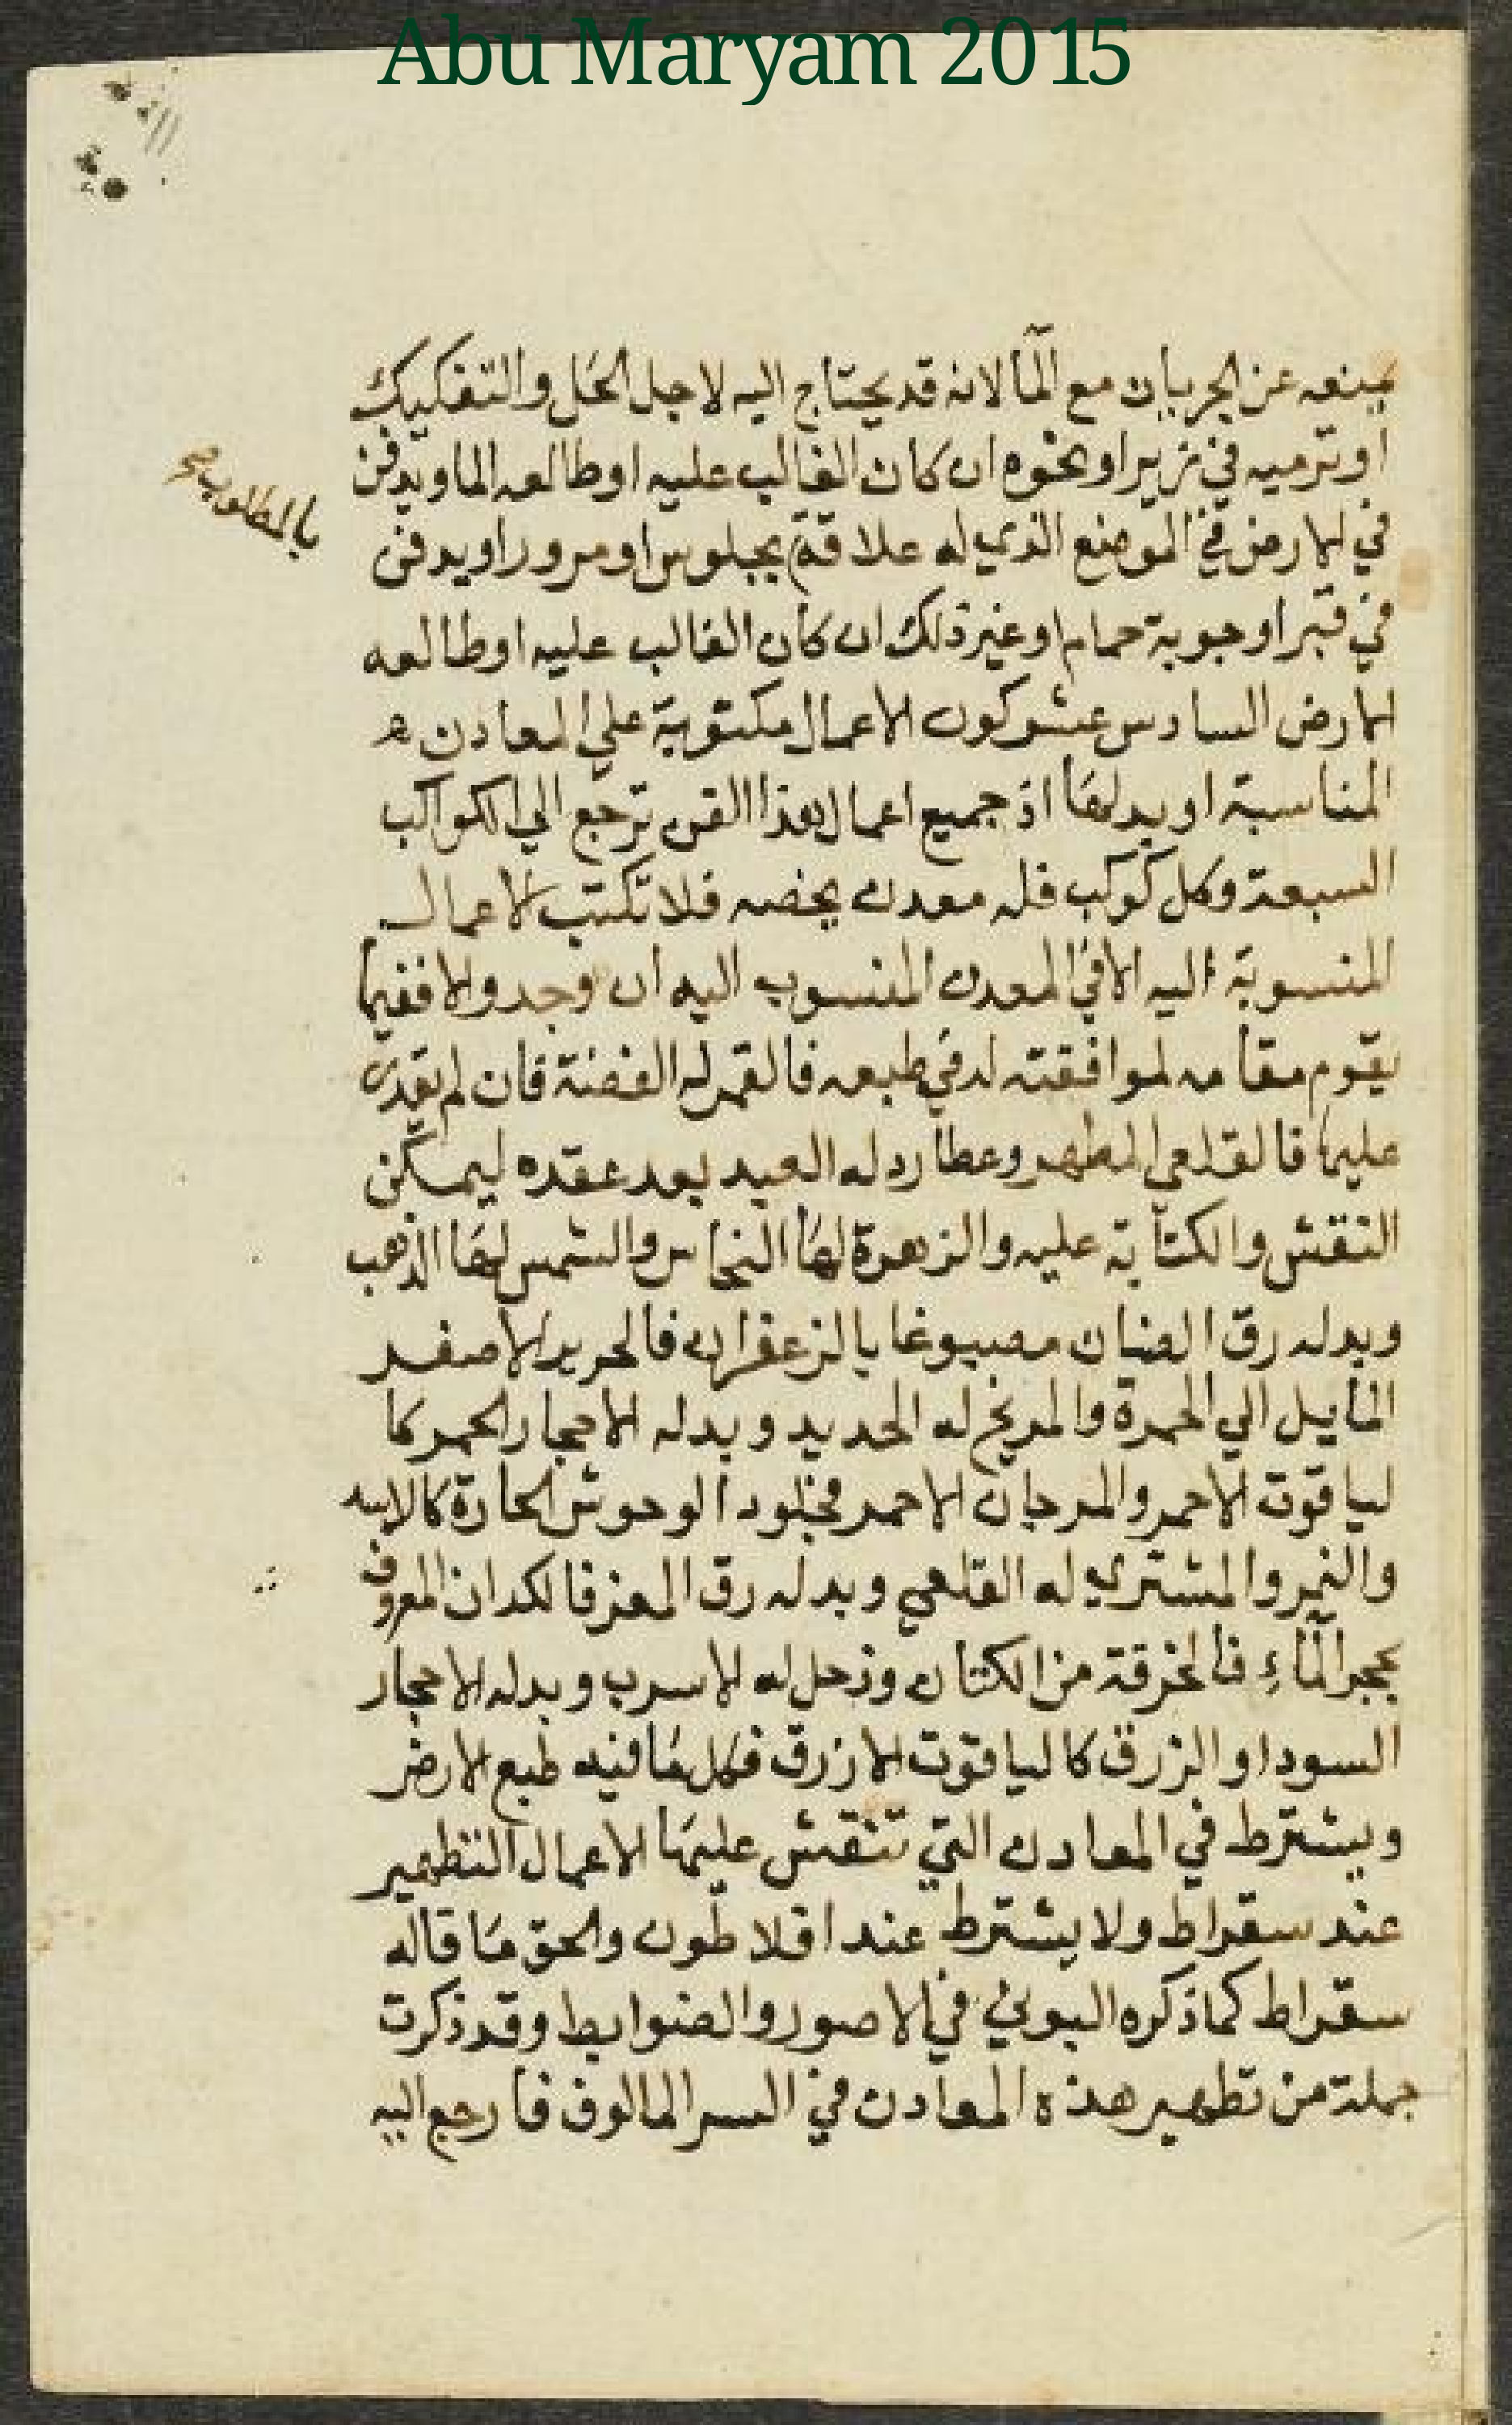 Abu Maryam 2015
يمنعه عن الجريان مع المآ لانه قد يحتاج اليه لاجل الحل والتفكيك
او ترميه في زير او نحوه ان كان الغالب عليه او طالعه الما ويدفن
في الارض في الموضع الذي له علاقة بجلوس او مرور او يدفن
بالمطلوب صح
في قبر او جوبة حمام او غير ذلك ان كان الغالب عليه او طالعه
الارض السادس عشر كون الاعمال مكتوبة علي المعادن
المناسبة او بدلها اذ جميع اعمال هذا الفن ترجع الي الكواكب
السبعة وكل كوكب فله معدن يخصه فلا تكتب الاعمال
المنسوبة اليه الا في المعدن المنسوب اليه ان وجد والا ففيما
يقوم مقامه لموافقته له في طبعه فالقمر له الفضة فان لم يقدر
عليها فالقلعي المطهر وعطارد له العبد بعد عقده ليمكن
النقش والكتابة عليه والزهرة لها النحاس والشمس لها الذهب
وبدله رق الضان مصبوغا بالزعفران فالحرير الاصفر
المايل الي الحمرة والمريخ له الحديد وبدله الاحجار الحمر كا
لياقوت الاحمر والمرجان الاحمر فجلود الوحوش الحارة كالاسد
والنمر والمشتري له القلعي وبدله رق المعز فالكدان المعروف
بحجر المآء فالخرقة من الكتان وزحل له الاسرب وبدله الاحجار
السود او الزرق كالياقوت الازرق فكل ما فيه طبع الارض
ويشترط في المعادن التي تنقش عليها الاعمال التطهير
عند سقراط ولا يشترط عند افلاطون والحق ما قاله
سقراط كما ذكره البوني في الاصور والضوابط وقد ذكرت
جملة من تطهير هذه المعادن في السر المالوف فارجع اليه